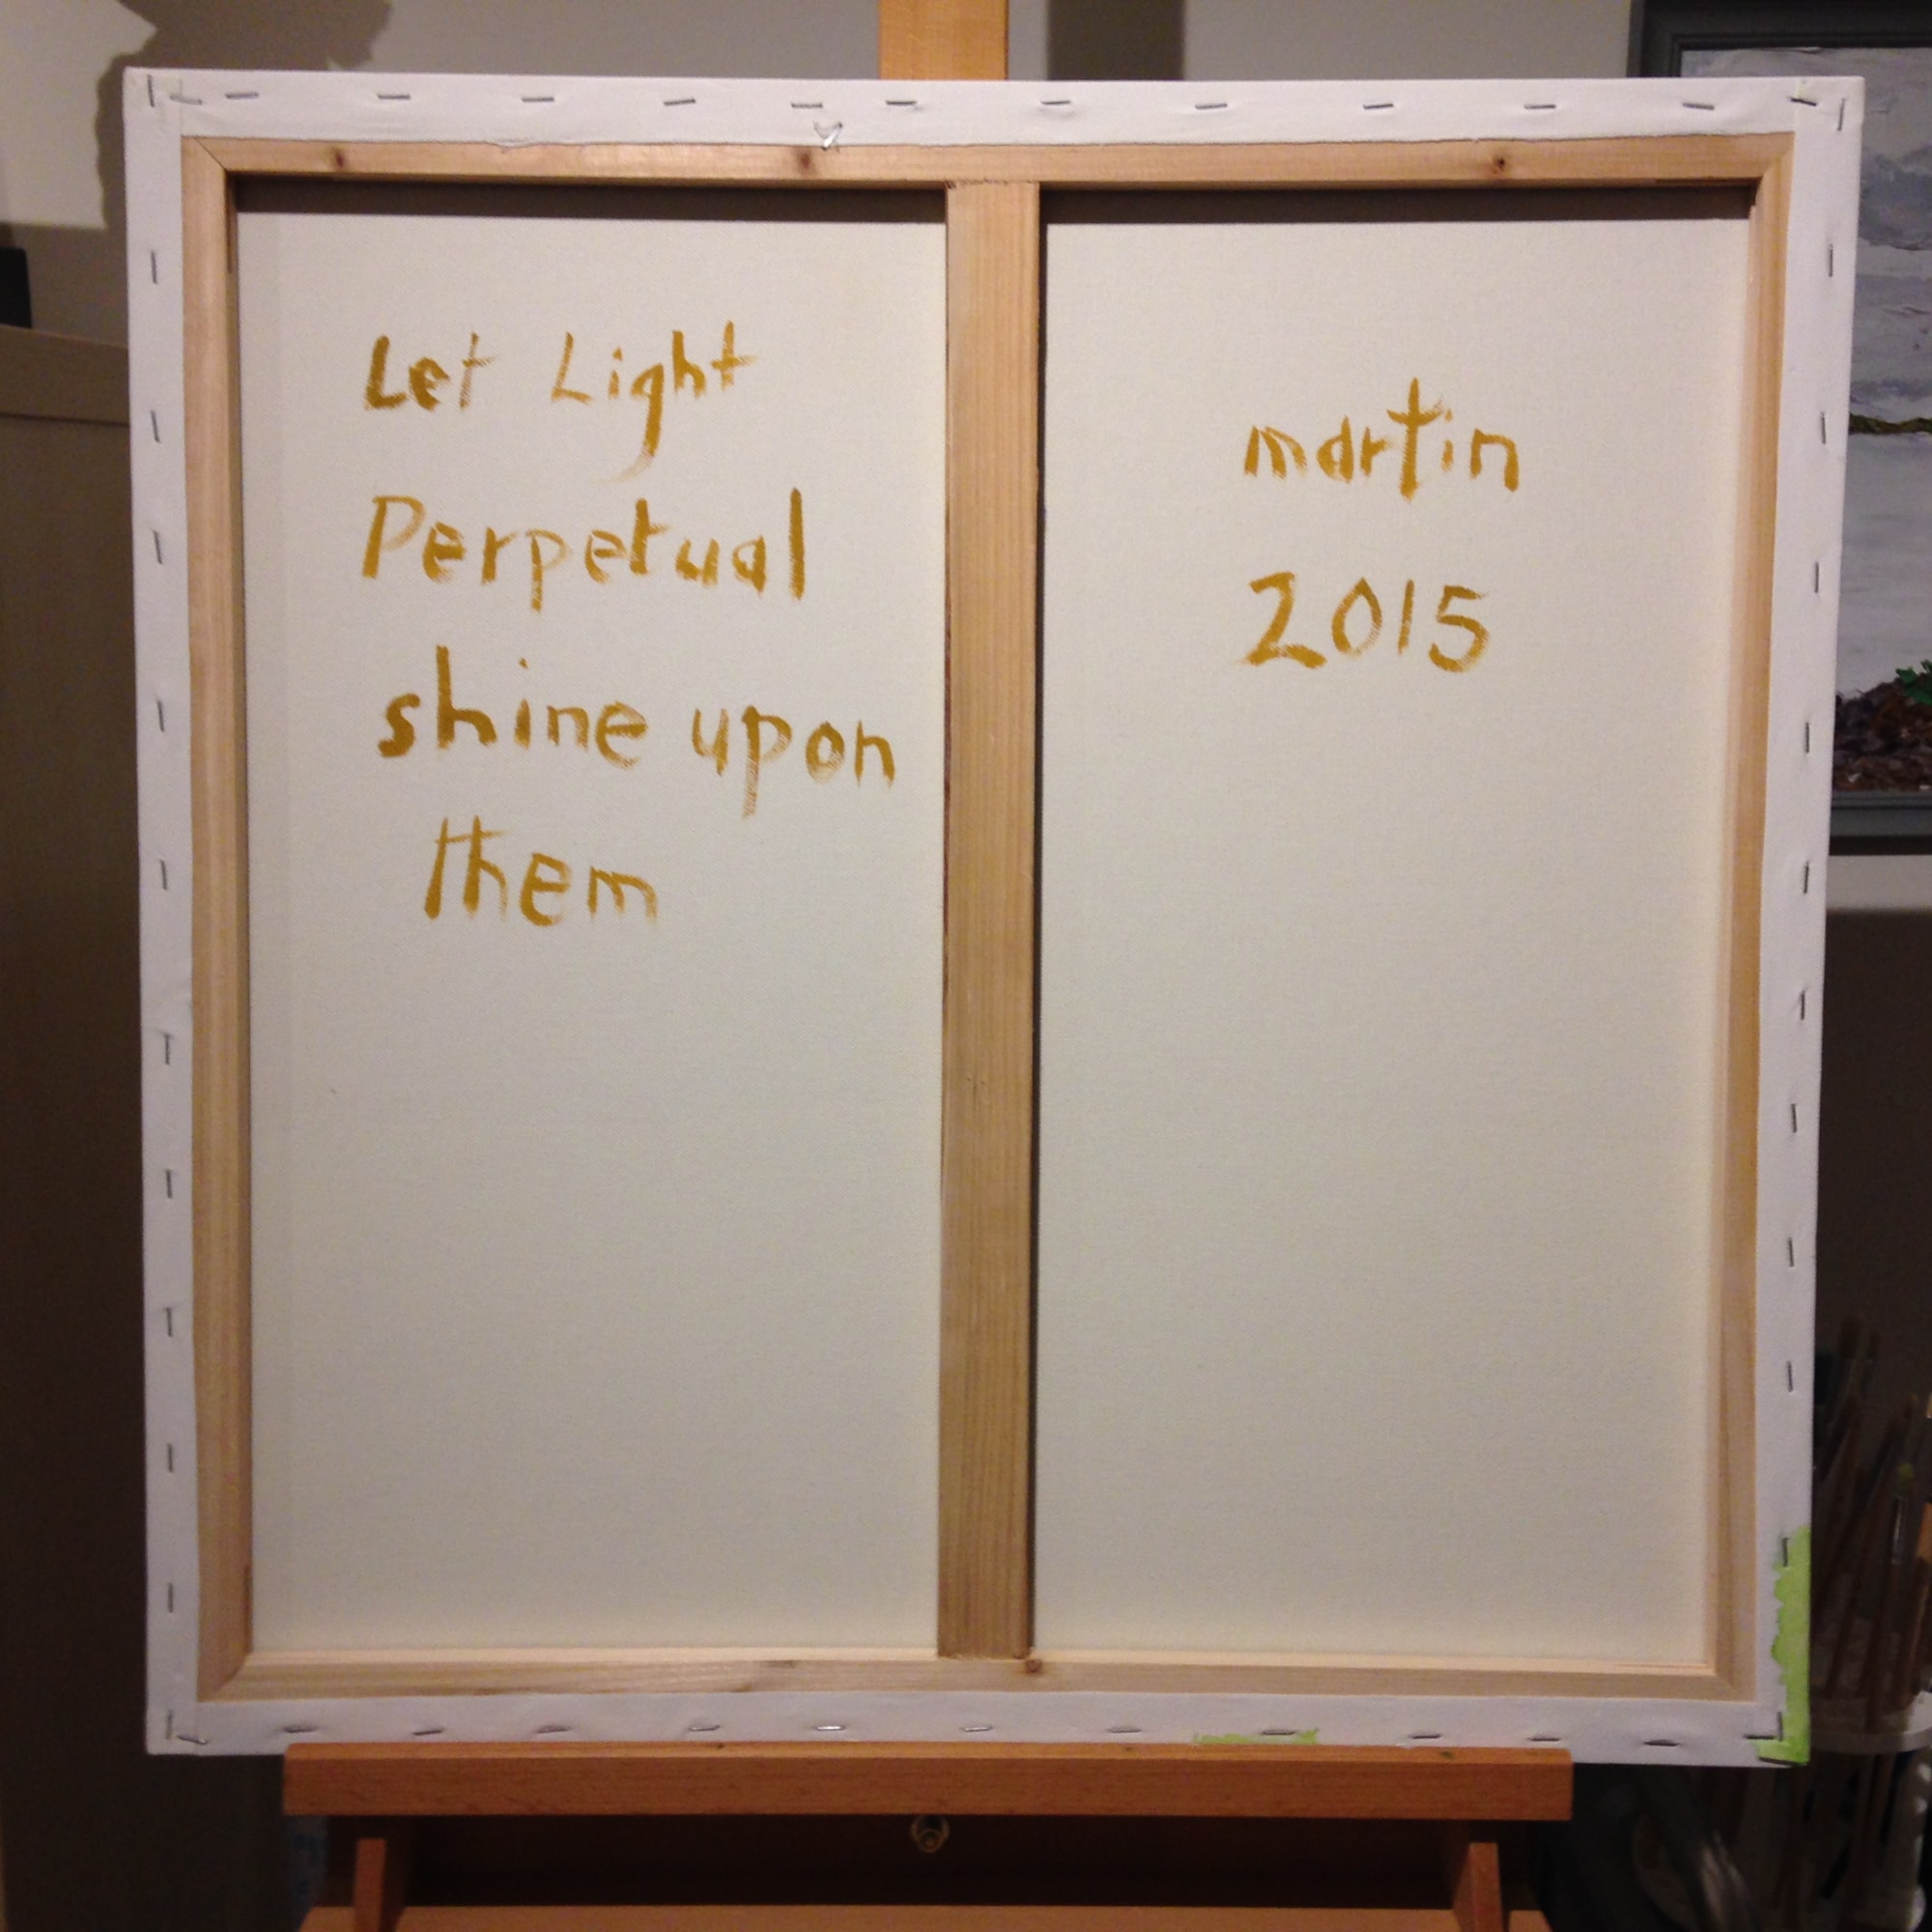 Let Light
Perpetual
shine upon
them
martin
2015